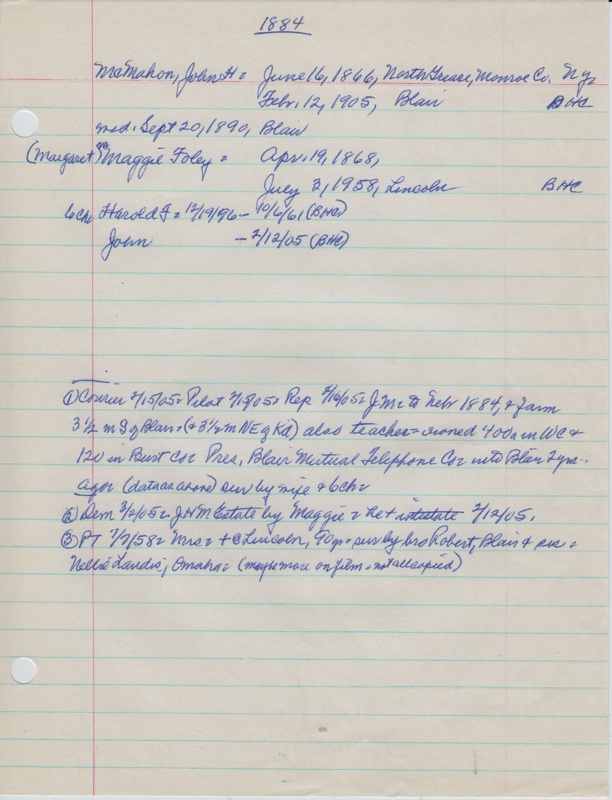 1884
McMahon, John H = June 16, 1866, North Greece, Monroe Co. Ny.
Febr. 12, 1905, Blair BHC
md. Sept 20, 1890, Blair
(Margaret) Maggie Foley = Apr. 19, 1868,
July 2, 1958, Lincoln BHC
6 ch Harold F = 12/19/96 – 10/6/61 (BHC)
John – 2/12/05 (BHC)
① Courier 2/15/05 = Pilot 2/15/05 = Rep 2/16/05 = J Mc to Nebr 1884, & farm
3½ m S of Blair = (& 3½ m NE of Kd) also teacher = owned 400a in WC &
120 in Burt Co = Pres, Blair Mutual Telephone Co = into Blair 2 yrs.
ago = (data as above) sur by wife & 6 ch =
② Dem 3/2/05 = JHM Estate by Maggie = he + intestate 2/12/05.
③ PT 7/7/58 = Mrs = + @ Lincoln, 90 yr = sur by bro Robert, Blair & sis =
Nellie Landis, Omaha = (maybe more on film = not all copied)